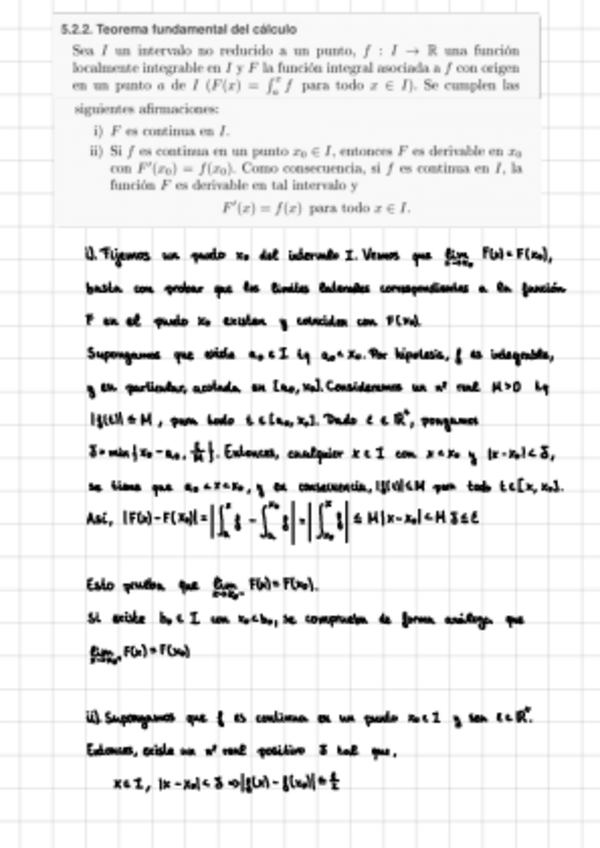 5.2.2. Teorema fundamental del cálculo
Sea I un intervalo no reducido a un punto, f : I → ℝ una función
localmente integrable en I y F la función integral asociada a f con origen
en un punto a de I (F(x) = ∫ₐˣ f para todo x ∈ I). Se cumplen las
siguientes afirmaciones:
i) F es continua en I.
ii) Si f es continua en un punto x₀ ∈ I, entonces F es derivable en x₀
con F'(x₀) = f(x₀). Como consecuencia, si f es continua en I, la
función F es derivable en tal intervalo y
F'(x) = f(x) para todo x ∈ I.
i). Fijemos un punto x₀ del intervalo I. Veamos que lim x→x₀ F(x) = F(x₀),
basta con probar que los límites laterales correspondientes a la función
F en el punto x₀ existen y coinciden con F(x₀).
Supongamos que exista a₀ ∈ I tq a₀ < x₀. Por hipótesis, f es integrable,
y en particular, acotada en [a₀, x₀]. Consideremos un nº real M>0 tq
|f(t)| ≤ M, para todo t ∈ [a₀, x₀]. Dado ε ∈ ℝ⁺, pongamos
δ = min{x₀ - a₀, ε/M}. Entonces, cualquier x ∈ I con x < x₀ y |x - x₀| < δ,
se tiene que a₀ < x < x₀, y en consecuencia, |f(t)| ≤ M para todo t ∈ [x, x₀].
Así, |F(x) - F(x₀)| = |∫ₐˣ f - ∫ₐˣ⁰ f| = |∫ₓ₀ˣ f| ≤ M|x - x₀| < M δ ≤ ε
Esto prueba que lim x→x₀⁻ F(x) = F(x₀).
Si existe b₀ ∈ I con x₀ < b₀, se comprueba de forma análoga que
lim x→x₀⁺ F(x) = F(x₀)
ii) Supongamos que f es continua en un punto x₀ ∈ I y sea ε ∈ ℝ⁺.
Entonces, existe un nº real positivo δ tal que,
x ∈ I, |x - x₀| < δ ⇒ |f(x) - f(x₀)| ≤ ε/2